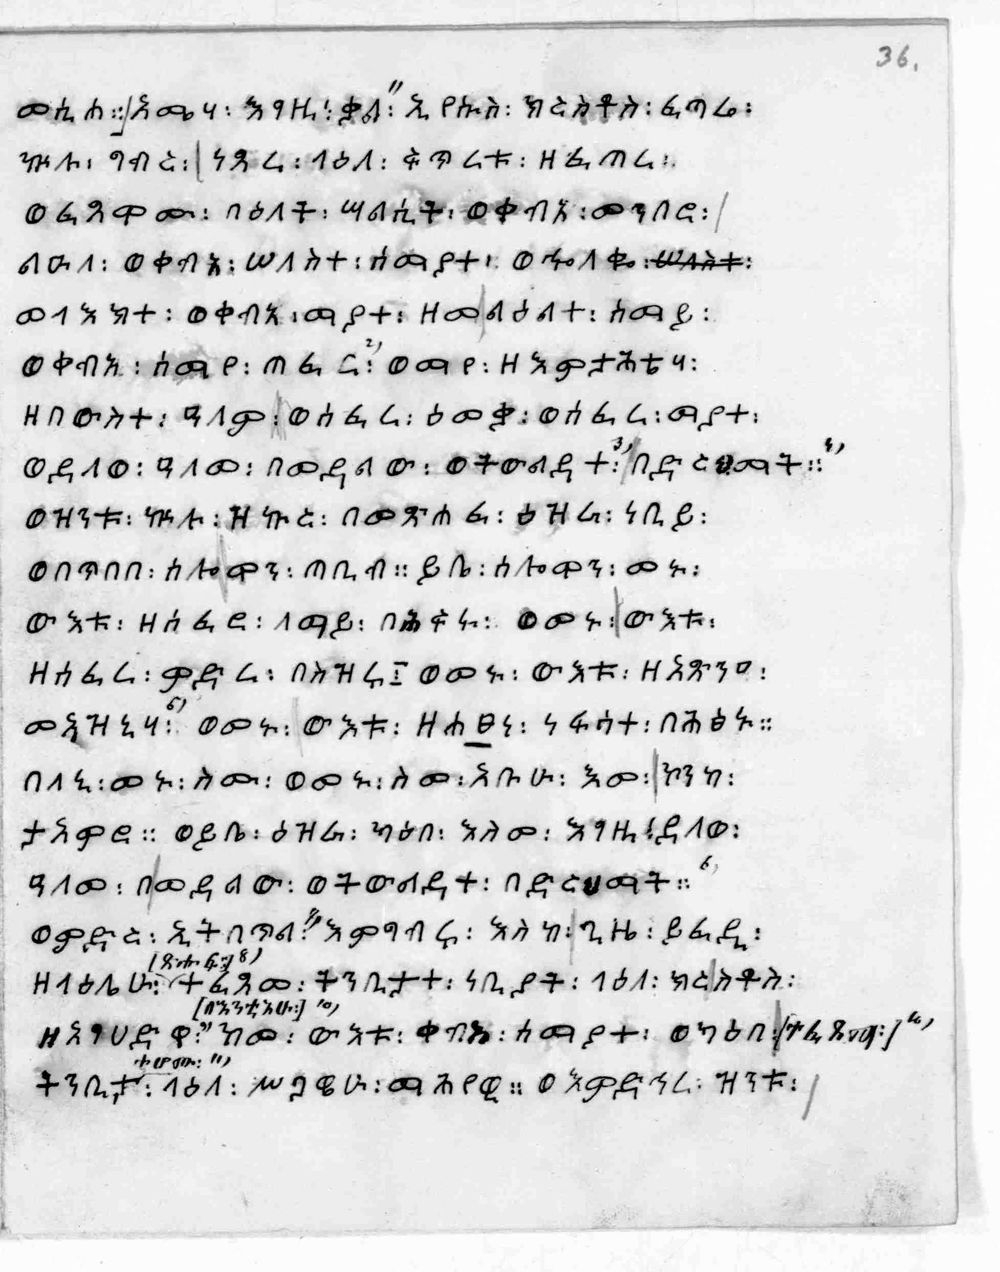 36.
መሲሐ ። እሜሃ ፡ እግዚ ፡ ቃል ፡ ኢየሱስ ፡ ክርስቶስ ፡ ፈጣሬ ፡
ኵሉ ፡ ግብር ፡ ነጸረ ፡ ላዕለ ፡ ፍጥረቱ ፡ ዘፈጠረ ፡
ወፈጸዎሙ ፡ በዕለት ፡ ሣልሲት ፡ ወቀብአ ፡ መንበር ፡
ልዑለ ፡ ወቀብአ ፡ ሠለስተ ፡ ሰማያተ ፡ ወኈለቈ ፡ ሠለስተ ፡
መላእክተ ፡ ወቀብአ ፡ ማያተ ፡ ዘመልዕልተ ፡ ሰማይ ፡
ወቀብአ ፡ ሰማየ ፡ ጠፈር ፡ ወማየ ፡ ዘእምታሕቴሃ ፡
ዘበውስተ ፡ ዓለም ፡ ወሰፈረ ፡ ዕመቃ ፡ ወሰፈረ ፡ ማያተ ፡
ወደለወ ፡ ዓለመ ፡ በመደልው ፡ ወትውልደተ ፡ በድርህማት ።
ወዝንቱ ፡ ኵሉ ፡ ዝኩር ፡ በመጽሐፈ ፡ ዕዝራ ፡ ነቢይ ፡
ወበጥበበ ፡ ሰሎሞን ፡ ጠቢብ ። ይቤ ፡ ሰሎሞን ፡ መኑ ፡
ውእቱ ፡ ዘሰፈረ ፡ ለማይ ፡ በሕፍኑ ፡ ወመኑ ፡ ውእቱ ፡
ዘሰፈረ ፡ ምድረ ፡ በስዝሩ ፡ ወመኑ ፡ ውእቱ ፡ ዘአጽንዐ ፡
መአዝኒሃ ፡ ወመኑ ፡ ውእቱ ፡ ዘሐፀነ ፡ ነፍሳተ ፡ በሕፅኑ ።
በለኒ ፡ መኑ ፡ ስሙ ፡ ወመኑ ፡ ስመ ፡ አቡሁ ፡ እመ ፡ ኮንከ ፡
ታአምር ። ወይቤ ፡ ዕዝራ ፡ ካዕበ ፡ እስመ ፡ እግዚ ፡ ደለወ ፡
ዓለመ ፡ በመደልው ፡ ወትውልደተ ፡ በድርህማት ።
ወምድር ፡ ኢትበጥል ፡ እምግብሩ ፡ እስከ ፡ ጊዜ ፡ ይፈዲ ፡
ዘላዕሌሁ ፡ ተፈጸመ ፡ ትንቢታተ ፡ ነቢያት ፡ ላዕለ ፡ ክርስቶስ ፡
ዘአግህደ ፡ ከመ ፡ ውእቱ ፡ ቀብአ ፡ ሰማያተ ፡ ወካዕበ ፡ [ተፈጸመ ፡]
ትንቢታ ፡ ላዕለ ፡ ሥጋዌሁ ፡ ማሕየዊ ። ወእምድኅረ ፡ ዝንቱ ፡